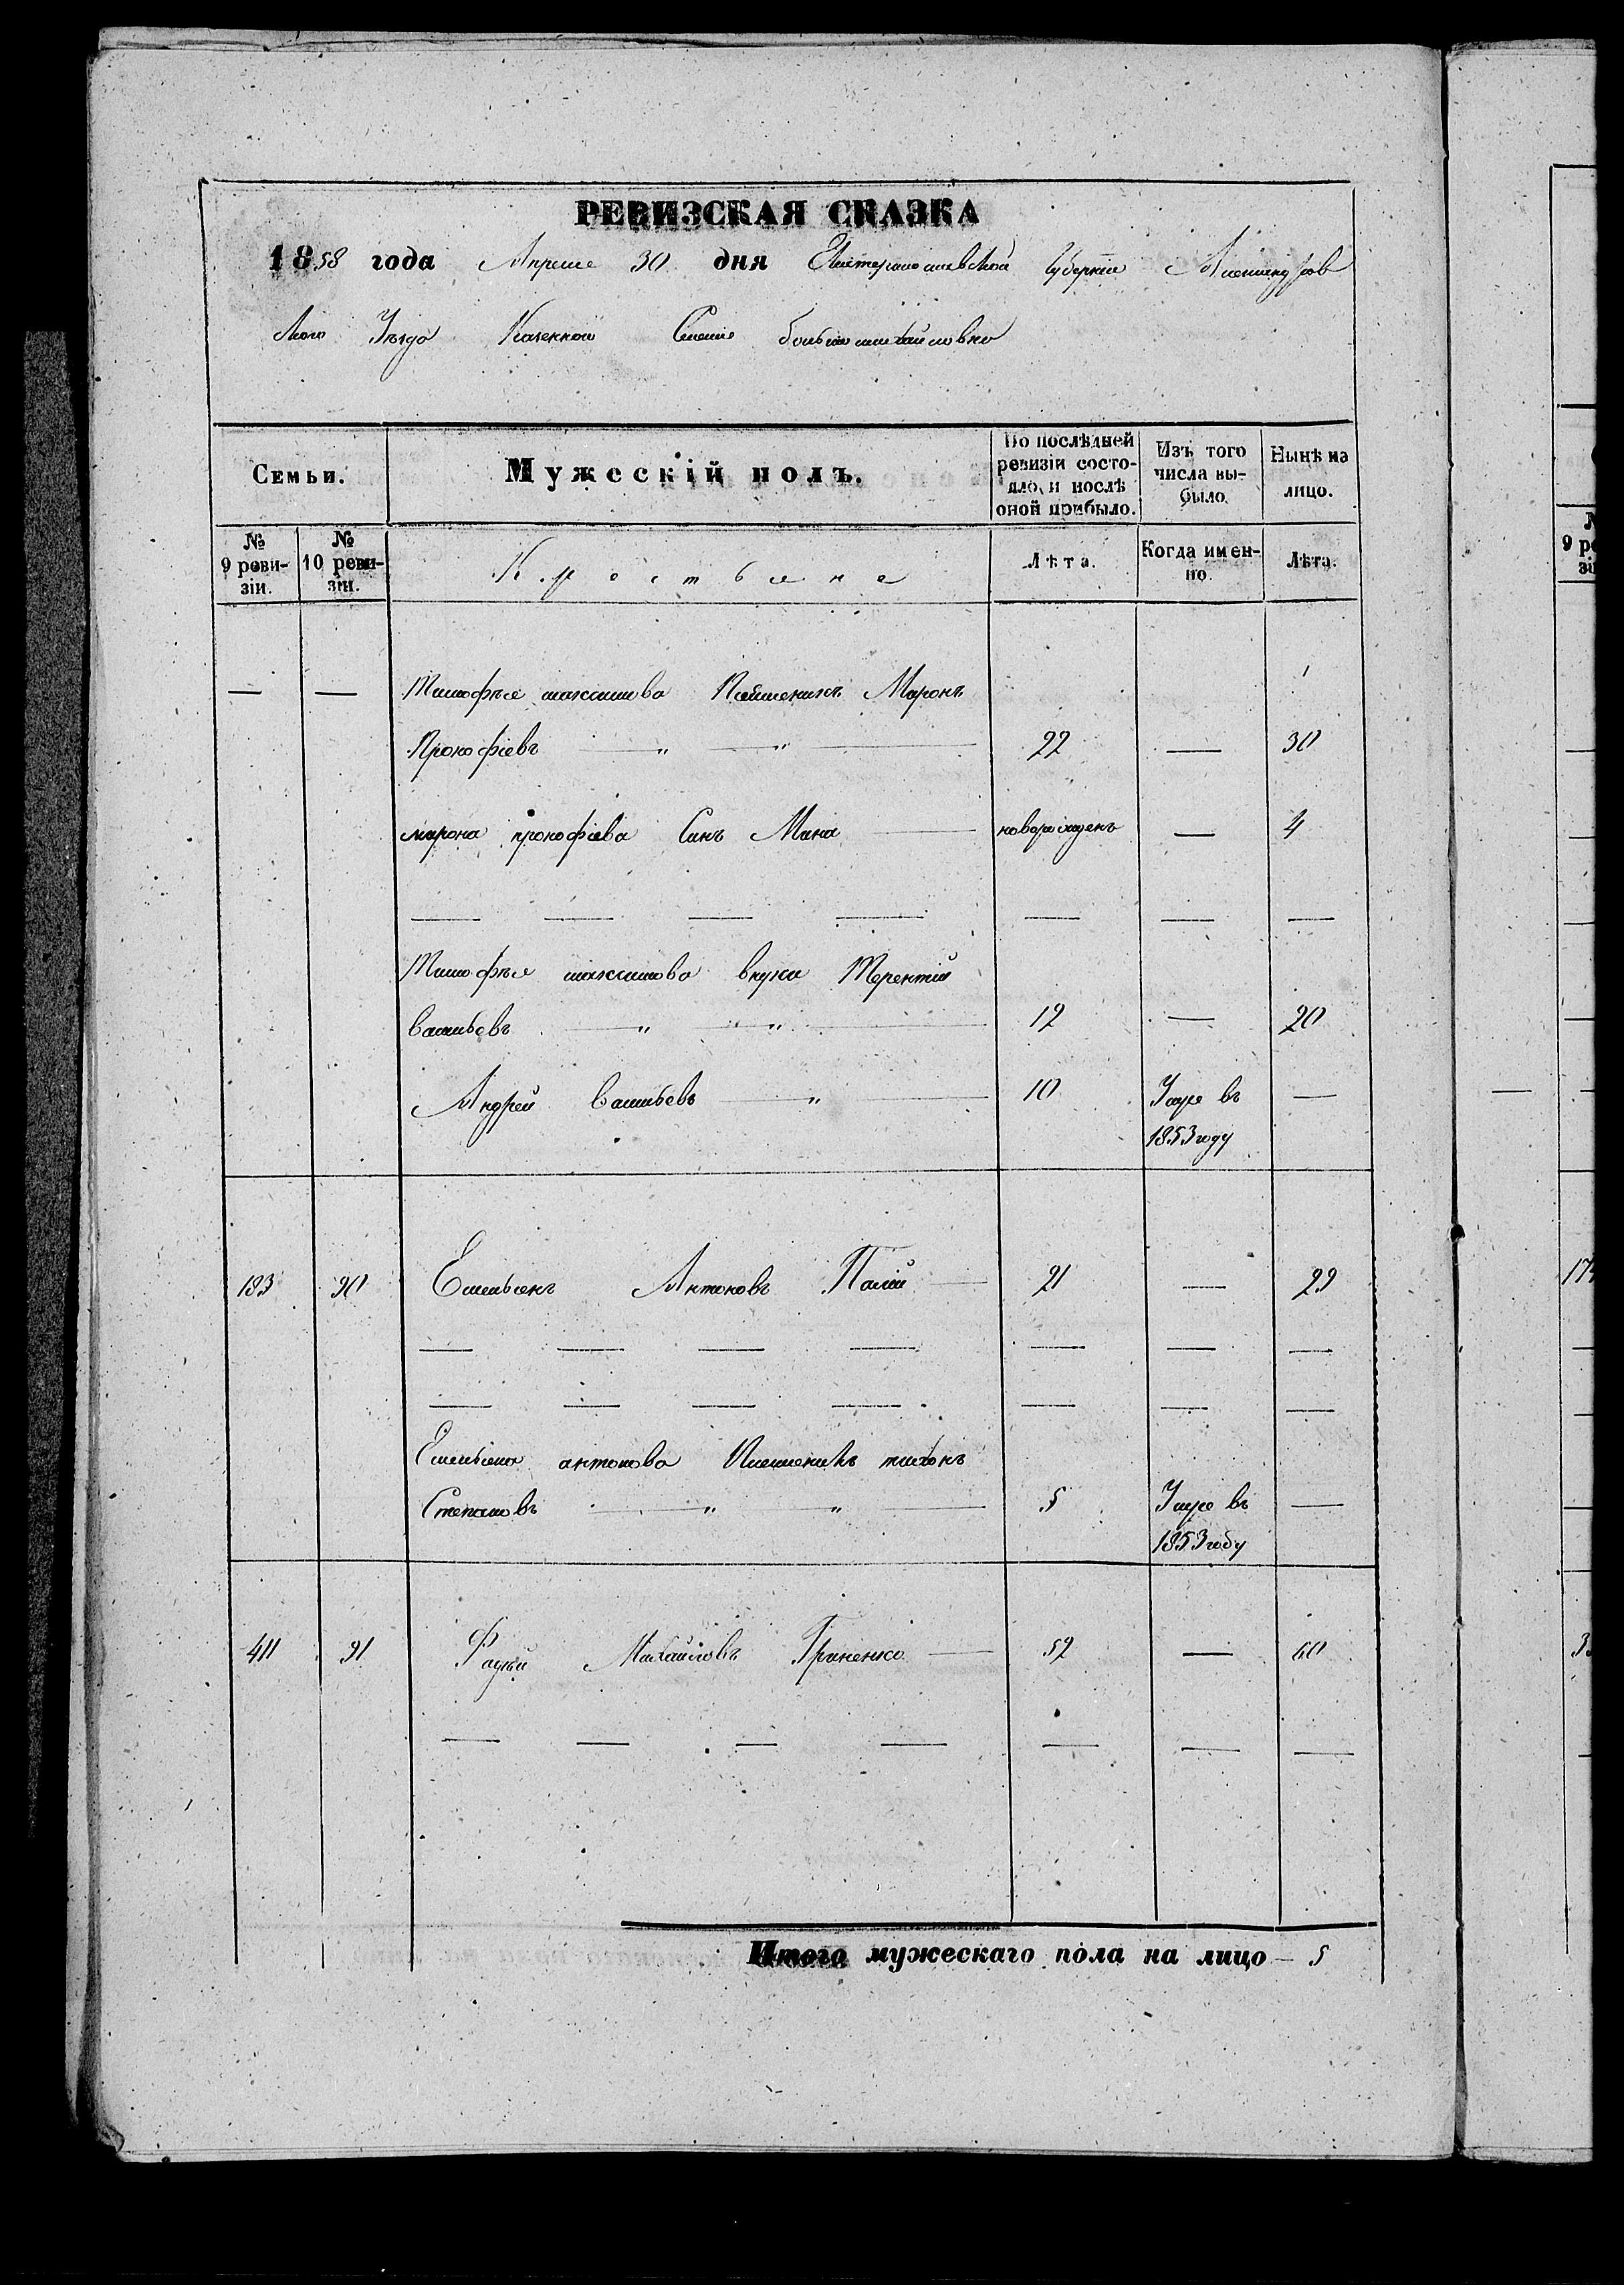 РЕВИЗСКАЯ СКАЗКА
1858 года Апреля 30 дня Екатеринославской Губерніи Александров
ского Уѣзда Казенной Селенія большемихайловки
Семьи. Мужескій полъ. По послѣдней ревизіи состояло, и послѣ оной прибыло. Изъ того числа выбыло. Нынѣ на лицо.
№ 9 ревизіи. № 10 ревизіи. Крестьяне Лѣта. Когда именно. Лѣта.
— — Тимофѣя максимова Племеникъ Маронъ
Прокофіевъ — „ — „ — 22 — 30
марона прокофіева Синъ Мина — новорожденъ — 4
— — — — — — —
Тимофѣя максимова внука Терентій
Васильевъ — „ — „ — 12 — 20
Андрей Васильевъ — „ — 10 Умре въ —
1853 году
183 90 Емельянъ Антоновъ Палій — 21 — 29
— — — — — — —
— — — — — — —
Емельяна антонова Племеникъ тихонъ
Степановъ — „ — „ — 5 Умре въ —
1853 году
411 91 Фадѣй Михайловъ Гриненко — 52 — 60
— — — — — — —
Итого мужескаго пола на лицо — 5
9 ре
зі
17
3